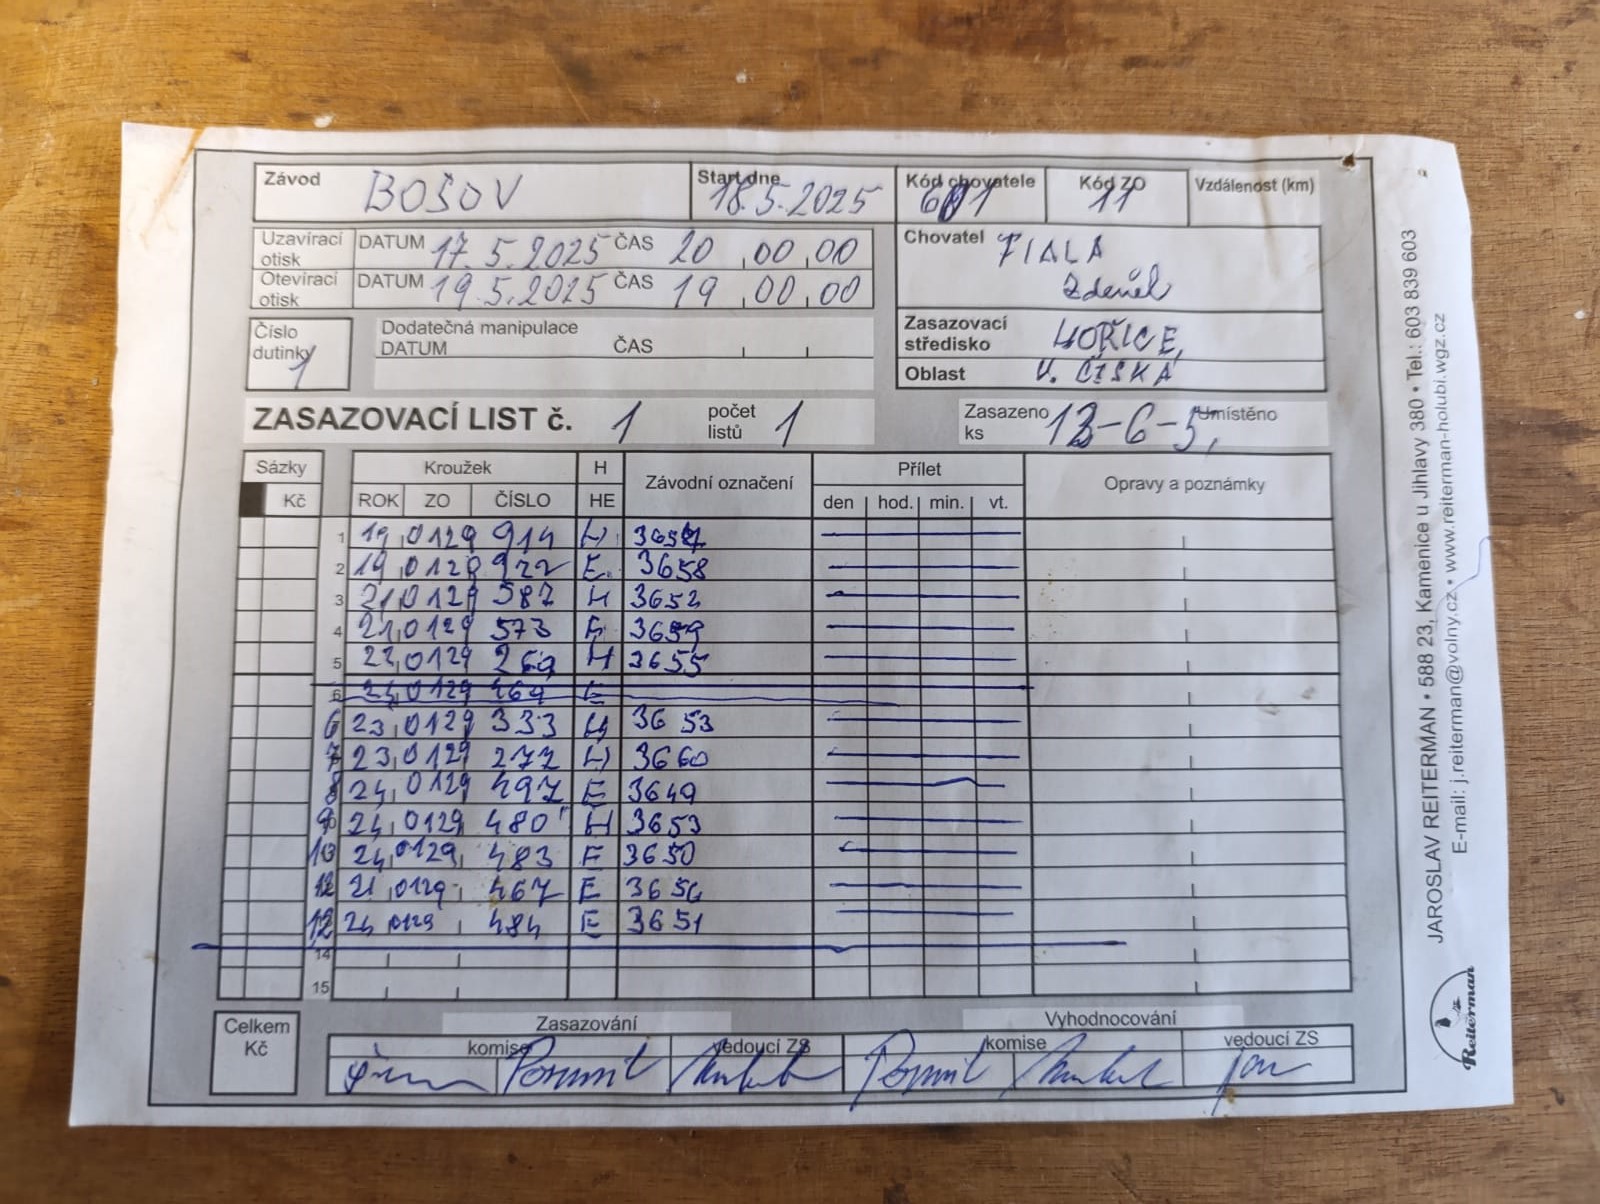 Závod BOŠOV Start dne 18.5.2025 Kód chovatele 601 Kód ZO 11 Vzdálenost (km)
Uzavírací otisk DATUM 17.5.2025 ČAS 20,00,00
Otevírací otisk DATUM 19.5.2025 ČAS 19,00,00
Chovatel FIALA
Zdeněk
Číslo dutinky 1
Dodatečná manipulace
DATUM ČAS
Zasazovací středisko HOŘICE
Oblast V. ČESKÁ
ZASAZOVACÍ LIST č. 1 počet listů 1 Zasazeno ks 12-6-5, Umístěno
Sázky Kroužek H Závodní označení Přílet Opravy a poznámky
Kč ROK ZO ČÍSLO HE den hod. min. vt.
1 19,0129 914 H
2 19,0129 922 E 3658
3 21,0129 587 H 3652
4 21,0129 573 3659
5 22,0129 269 H 3655
6 24,0129 464 E
6 23,0129 333 H 3653
7 23,0129 277 H 3660
8 24,0129 497 E 3649
9 24,0129 480 H 3653
10 24,0129 483 E 3650
21,0129 467 E 3656
12 24 0129 484 E 3651
14
15
Celkem Kč
Zasazování Vyhodnocování
komise vedoucí ZS komise vedoucí ZS
JAROSLAV REITERMAN • 588 23, Kamenice u Jihlavy 380 • Tel.: 603 839 603
E-mail: j.reiterman@volny.cz • www.reiterman-holubi.wgz.cz
Reiterman